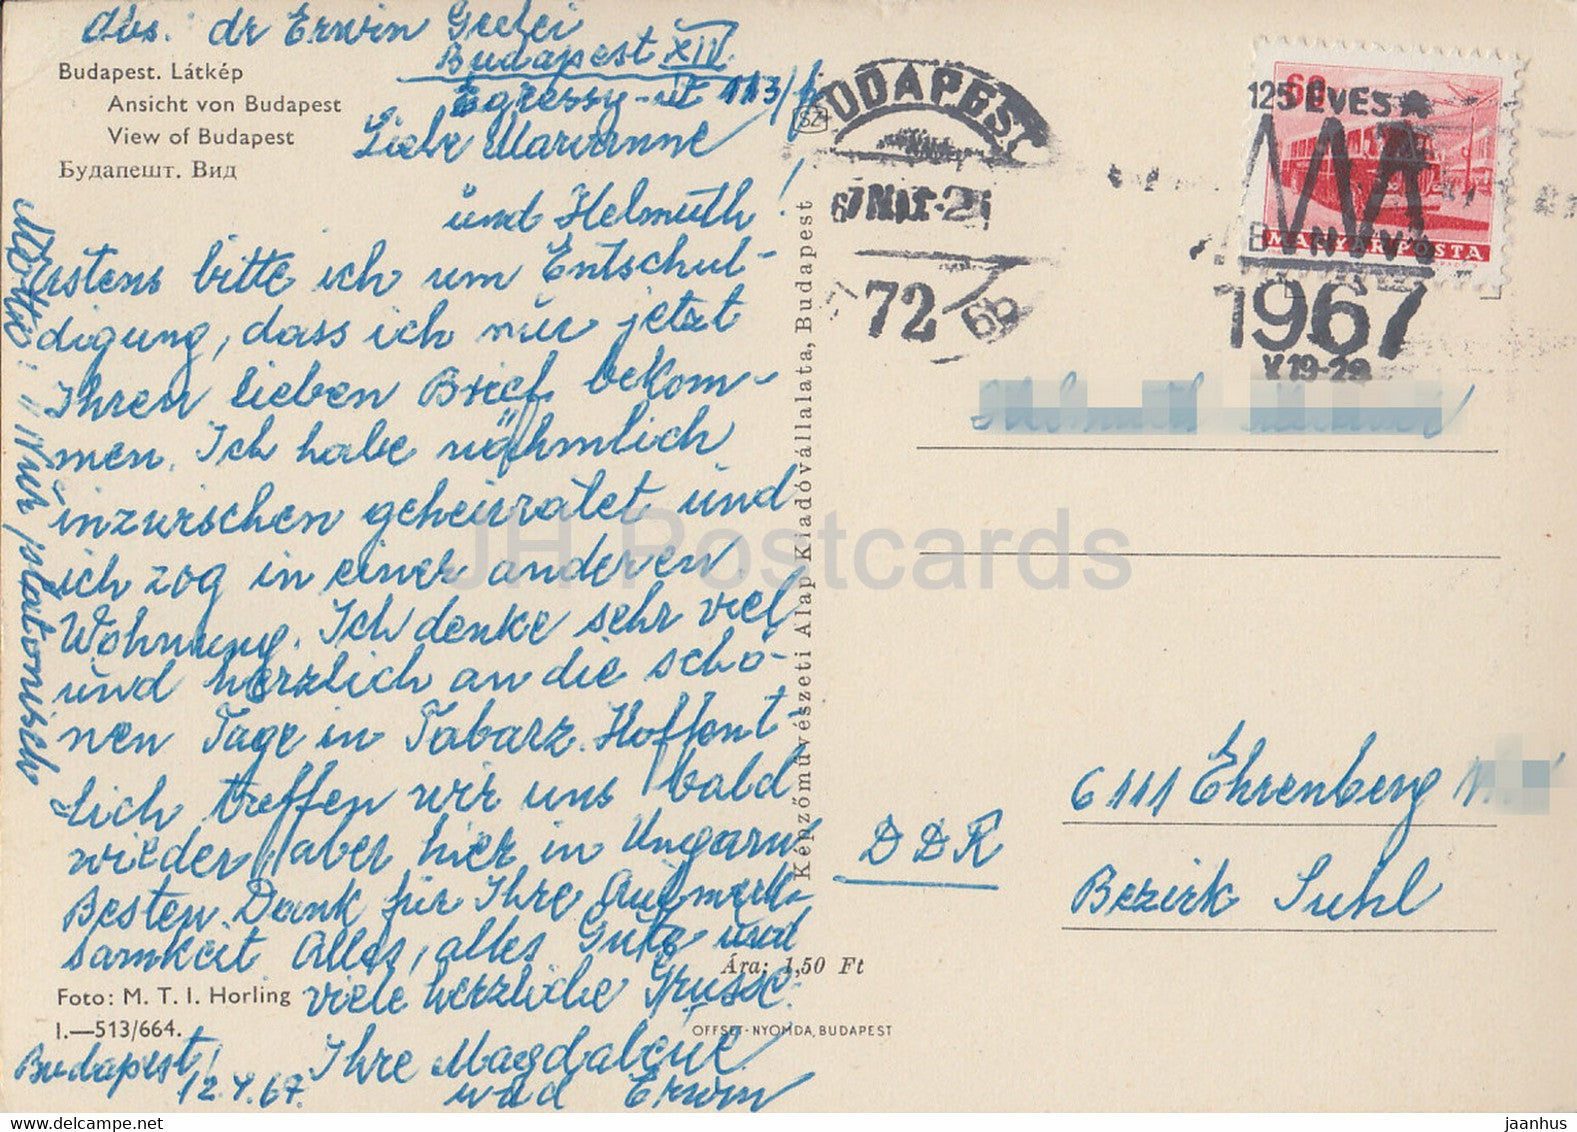 Abs: dr Erwin
Budapest XIV.
Egressy-út 113/
Budapest. Látkép
Ansicht von Budapest
View of Budapest
Будапешт. Вид
Liebe Marianne
und Helmuth!
Erstens bitte ich um Entschul-
digung, dass ich nur jetzt
Ihren lieben Brief bekom-
men. Ich habe nähmlich
inzwischen geheiratet und
ich zog in einer anderen
Wohnung. Ich denke sehr viel
und herzlich an die schö-
nen Tage in Tabarz. Hoffent-
lich treffen wir uns bald
wieder, aber hier in Ungarn
Besten Dank für Ihre Aufmerk-
samkeit Alles, alles Gute und
viele herzliche Grüsse:
Ihre Magdalene
und Erwin
Budapest,
12.V.67.
Motto: Nur platonisch
Foto: M. T. I. Horling
I.—513/664.
Ára: 1,50 Ft
OFFSET-NYOMDA, BUDAPEST
Képzőművészeti Alap Kiadóvállalata, Budapest
SZ
BUDAPEST
72
60
MAGYAR POSTA
125 ÉVES A
1967
V 19-29
Helmuth
6111 Ehrenberg
DDR
Bezirk Suhl
JH Postcards
www.delcampe.net
jaanhus